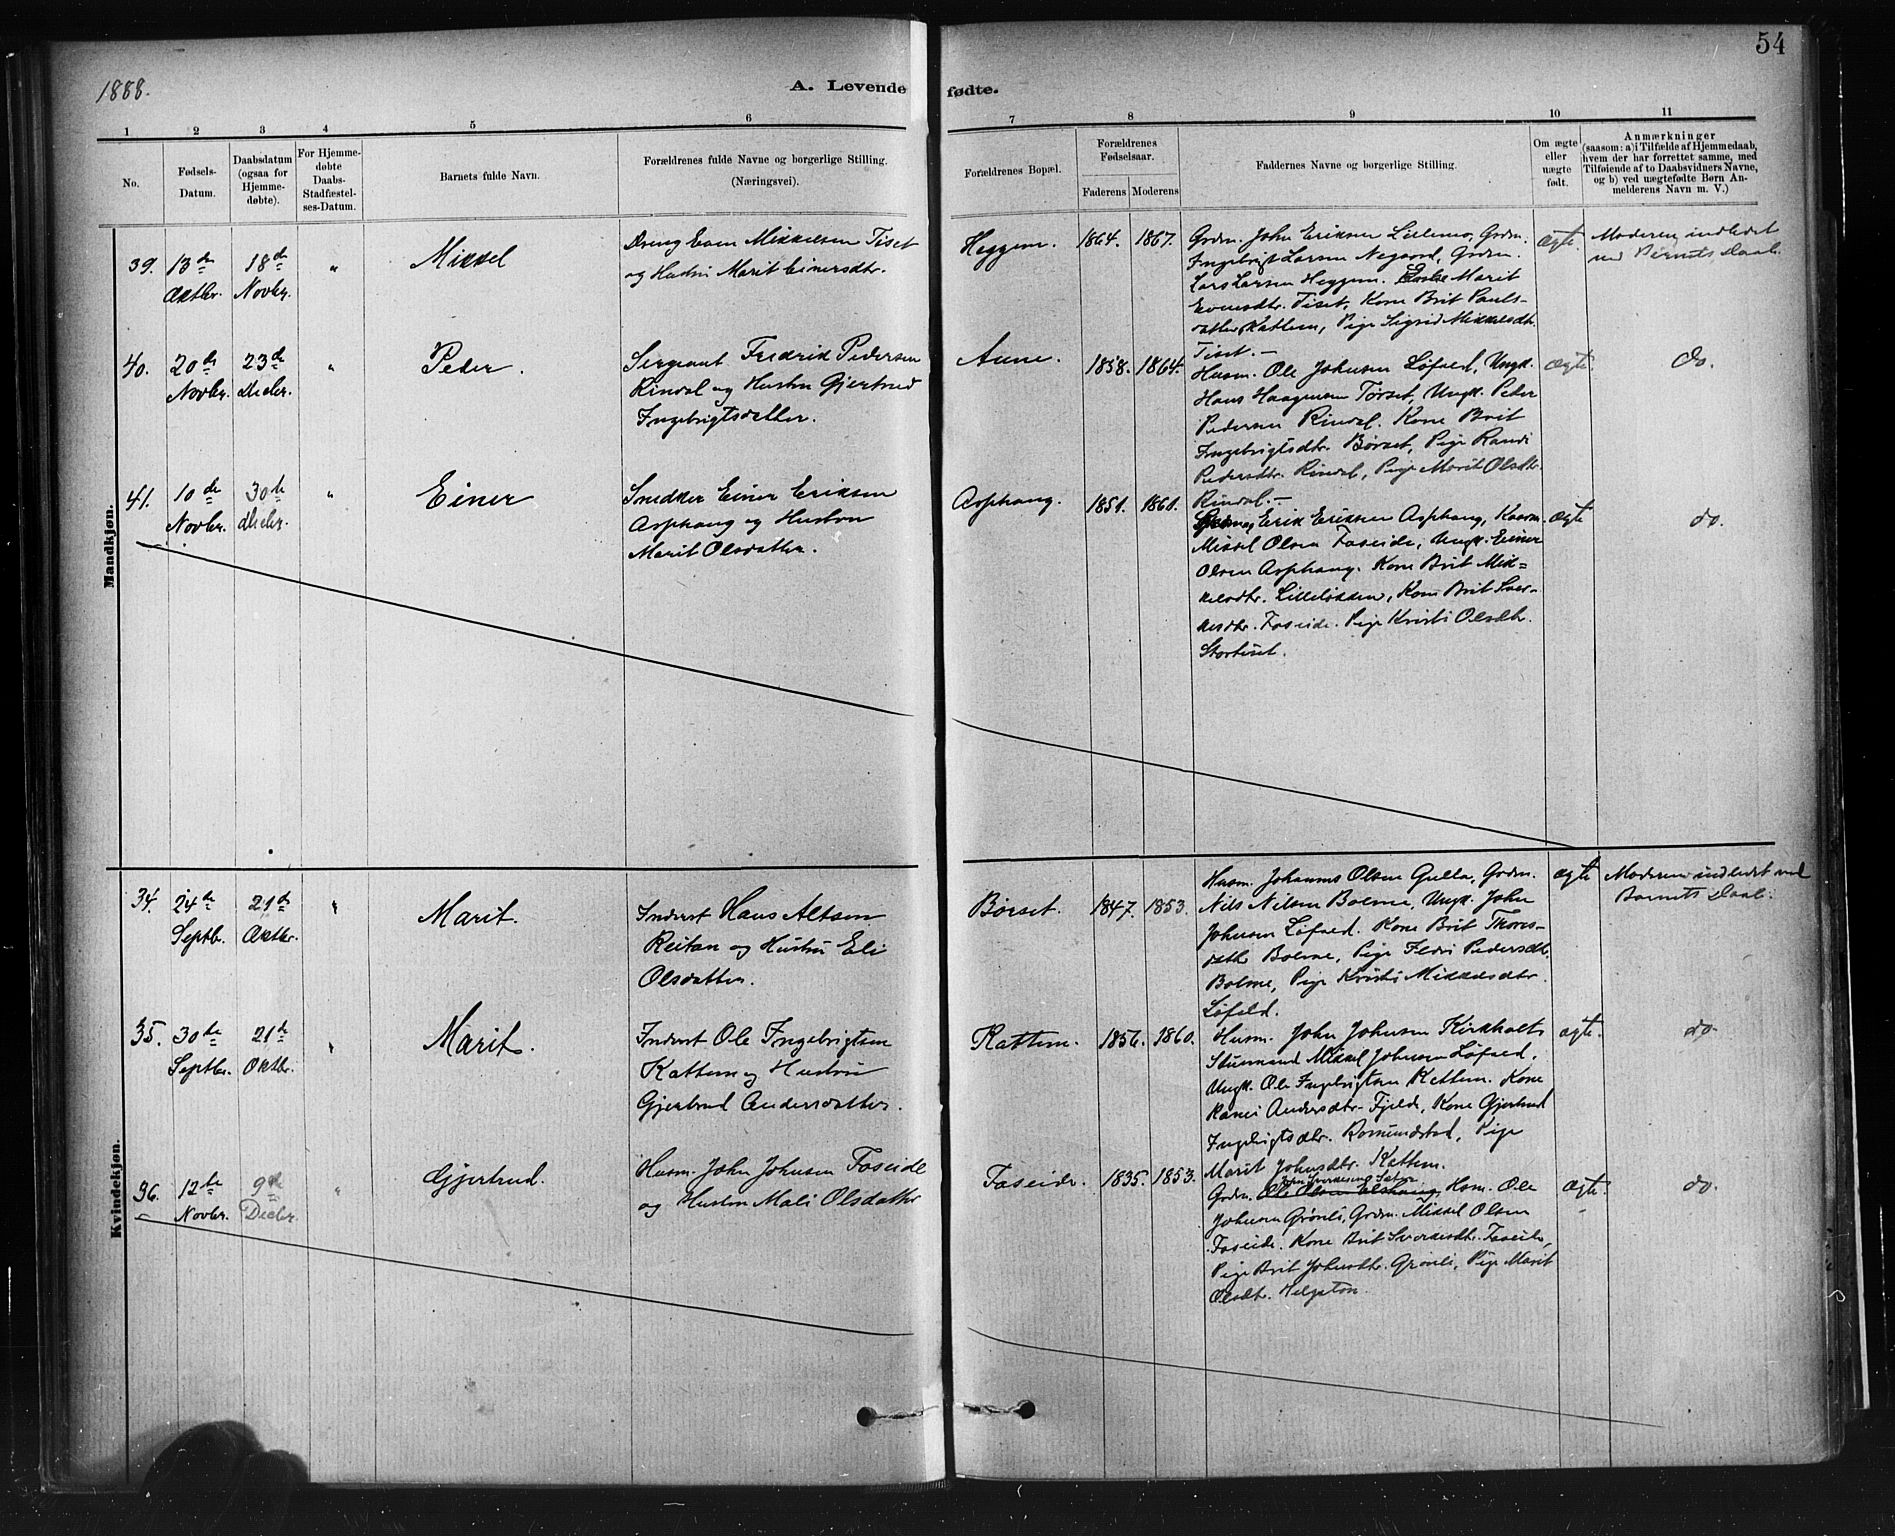 1888.
A. Levende fødte.
54
1 2 3 4 5 6 7 8 9 10 11
No.
Fødsels-
Datum.
Daabsdatum
(ogsaa for
Hjemme-
døbte).
For Hjemme-
døbte
Daabs-
Stadfæstel-
ses-Datum.
Barnets fulde Navn.
Forældrenes fulde Navne og borgerlige Stilling.
(Næringsvei).
Forældrenes Bopæl.
Forældrenes
Fødselsaar.
Faderens Moderens
Faddernes Navne og borgerlige Stilling.
Om ægte
eller
uægte
født.
Anmærkninger
(saasom: a) i Tilfælde af Hjemmedaab,
hvem der har forrettet samme, med
Tilføiende af to Daabsvidners Navne,
og b) ved uægtefødte Børn An-
melderens Navn m. V.)
Mandkjøn.
39. 13de
Oktbr.
18de
Novbr.
"
Mikkel
Dreng Even Mikkelsen Tiset
og Hustru Marit Einersdtr.
Heggem.
1864. 1867.
Grdm. John Eriksen Lillemo, Grdm.
Ingebrigt Larsen Negaard, Grdm.
Lars Larsen Heggem. Marit
Evensdtr. Tiset, Kone Brit Pauls-
datter Kattem, Pige Sigrid Mikkelsdtr.
Tiset.-
ægte.
Moderen indledet
ved Barnets Daab.
40. 20de
Novbr.
23de
Decbr.
"
Peder.
Sergeant Fredrik Pedersen
Rindal og Hustru Gjertrud
Ingebrigtsdatter.
Aune.
1858. 1864.
Husm. Ole Johnsen Løfald, Ungk.
Hans Haagensen Tørset, Ungk. Peder
Pedersen Rindal. Kone Brit
Ingebrigtsdtr. Børset, Pige Randi
Pedersdtr. Rindal, Pige Marit Olsdtr.
Rindal.-
ægte.
do.
41. 10de
Novbr.
30te
Decbr.
"
Einer
Snedker Einer Eriksen
Asphaug og Hustru
Marit Olsdatter.
Asphaug.
1851. 1861.
Erik Eriksen Asphaug, Kaarm.
Mikkel Olsen Faseide, Ungk. Einer
Olsen Asphaug. Kone Brit Mik=
kelsdtr. Lilleløkken, Kone Brit Sver-
kesdtr. Faseide. Pige Kristi Olsdtr.
Stortiset.
ægte
do.
Kvindekjøn.
34. 24de
Septbr.
21de
Oktbr.
"
Marit.
Inderst Hans Altsen
Reitan og Hustru Eli
Olsdatter.
Børset.
1847. 1853.
Husm. Johannes Olsen Gulla, Grdm.
Nils Nilsen Bolme, Ungk. John
Johnsen Løfald. Kone Brit Thores-
datter Bolme, Pige Pedersdtr.
Bolme, Pige Kristi Mikkelsdtr.
Løfald.
ægte
Moderen indledet ved
Barnets Daab.
35. 30te
Septbr.
21de
Oktbr.
"
Marit.
Inderst Ole Ingebrigtsen
Kattem og Hustru
Gjertrud Andersdatter.
Kattem.
1856. 1860.
Husm. John Johnsen Kirkholt,
Stuemand Mikkel Johnsen Løfald.
Ungk. Ole Ingebrigtsen Kattem. Kone
Andersdtr. Fjelde, Kone Gjertrud
Ingebrigtsdtr. Romundstad, Pige
Marit Johnsdtr. Kattem.
ægte.
do.
36. 12te
Novbr.
9de
Decbr.
"
Gjertrud.
Husm. John Johnsen Faseide
og Hustru Mali Olsdatter
Faseide.
1835. 1853.
John Sverkesen
Grdm. Ole Olsen Elshaug, Husm. Ole
Johnsen Grønli, Grdm. Mikkel Olsen
Faseide. Kone Brit Sverkesdtr. Faseide,
Pige Brit Johnsdtr. Grønli, Pige Marit
Olsdtr. Helgeton.
ægte.
do.